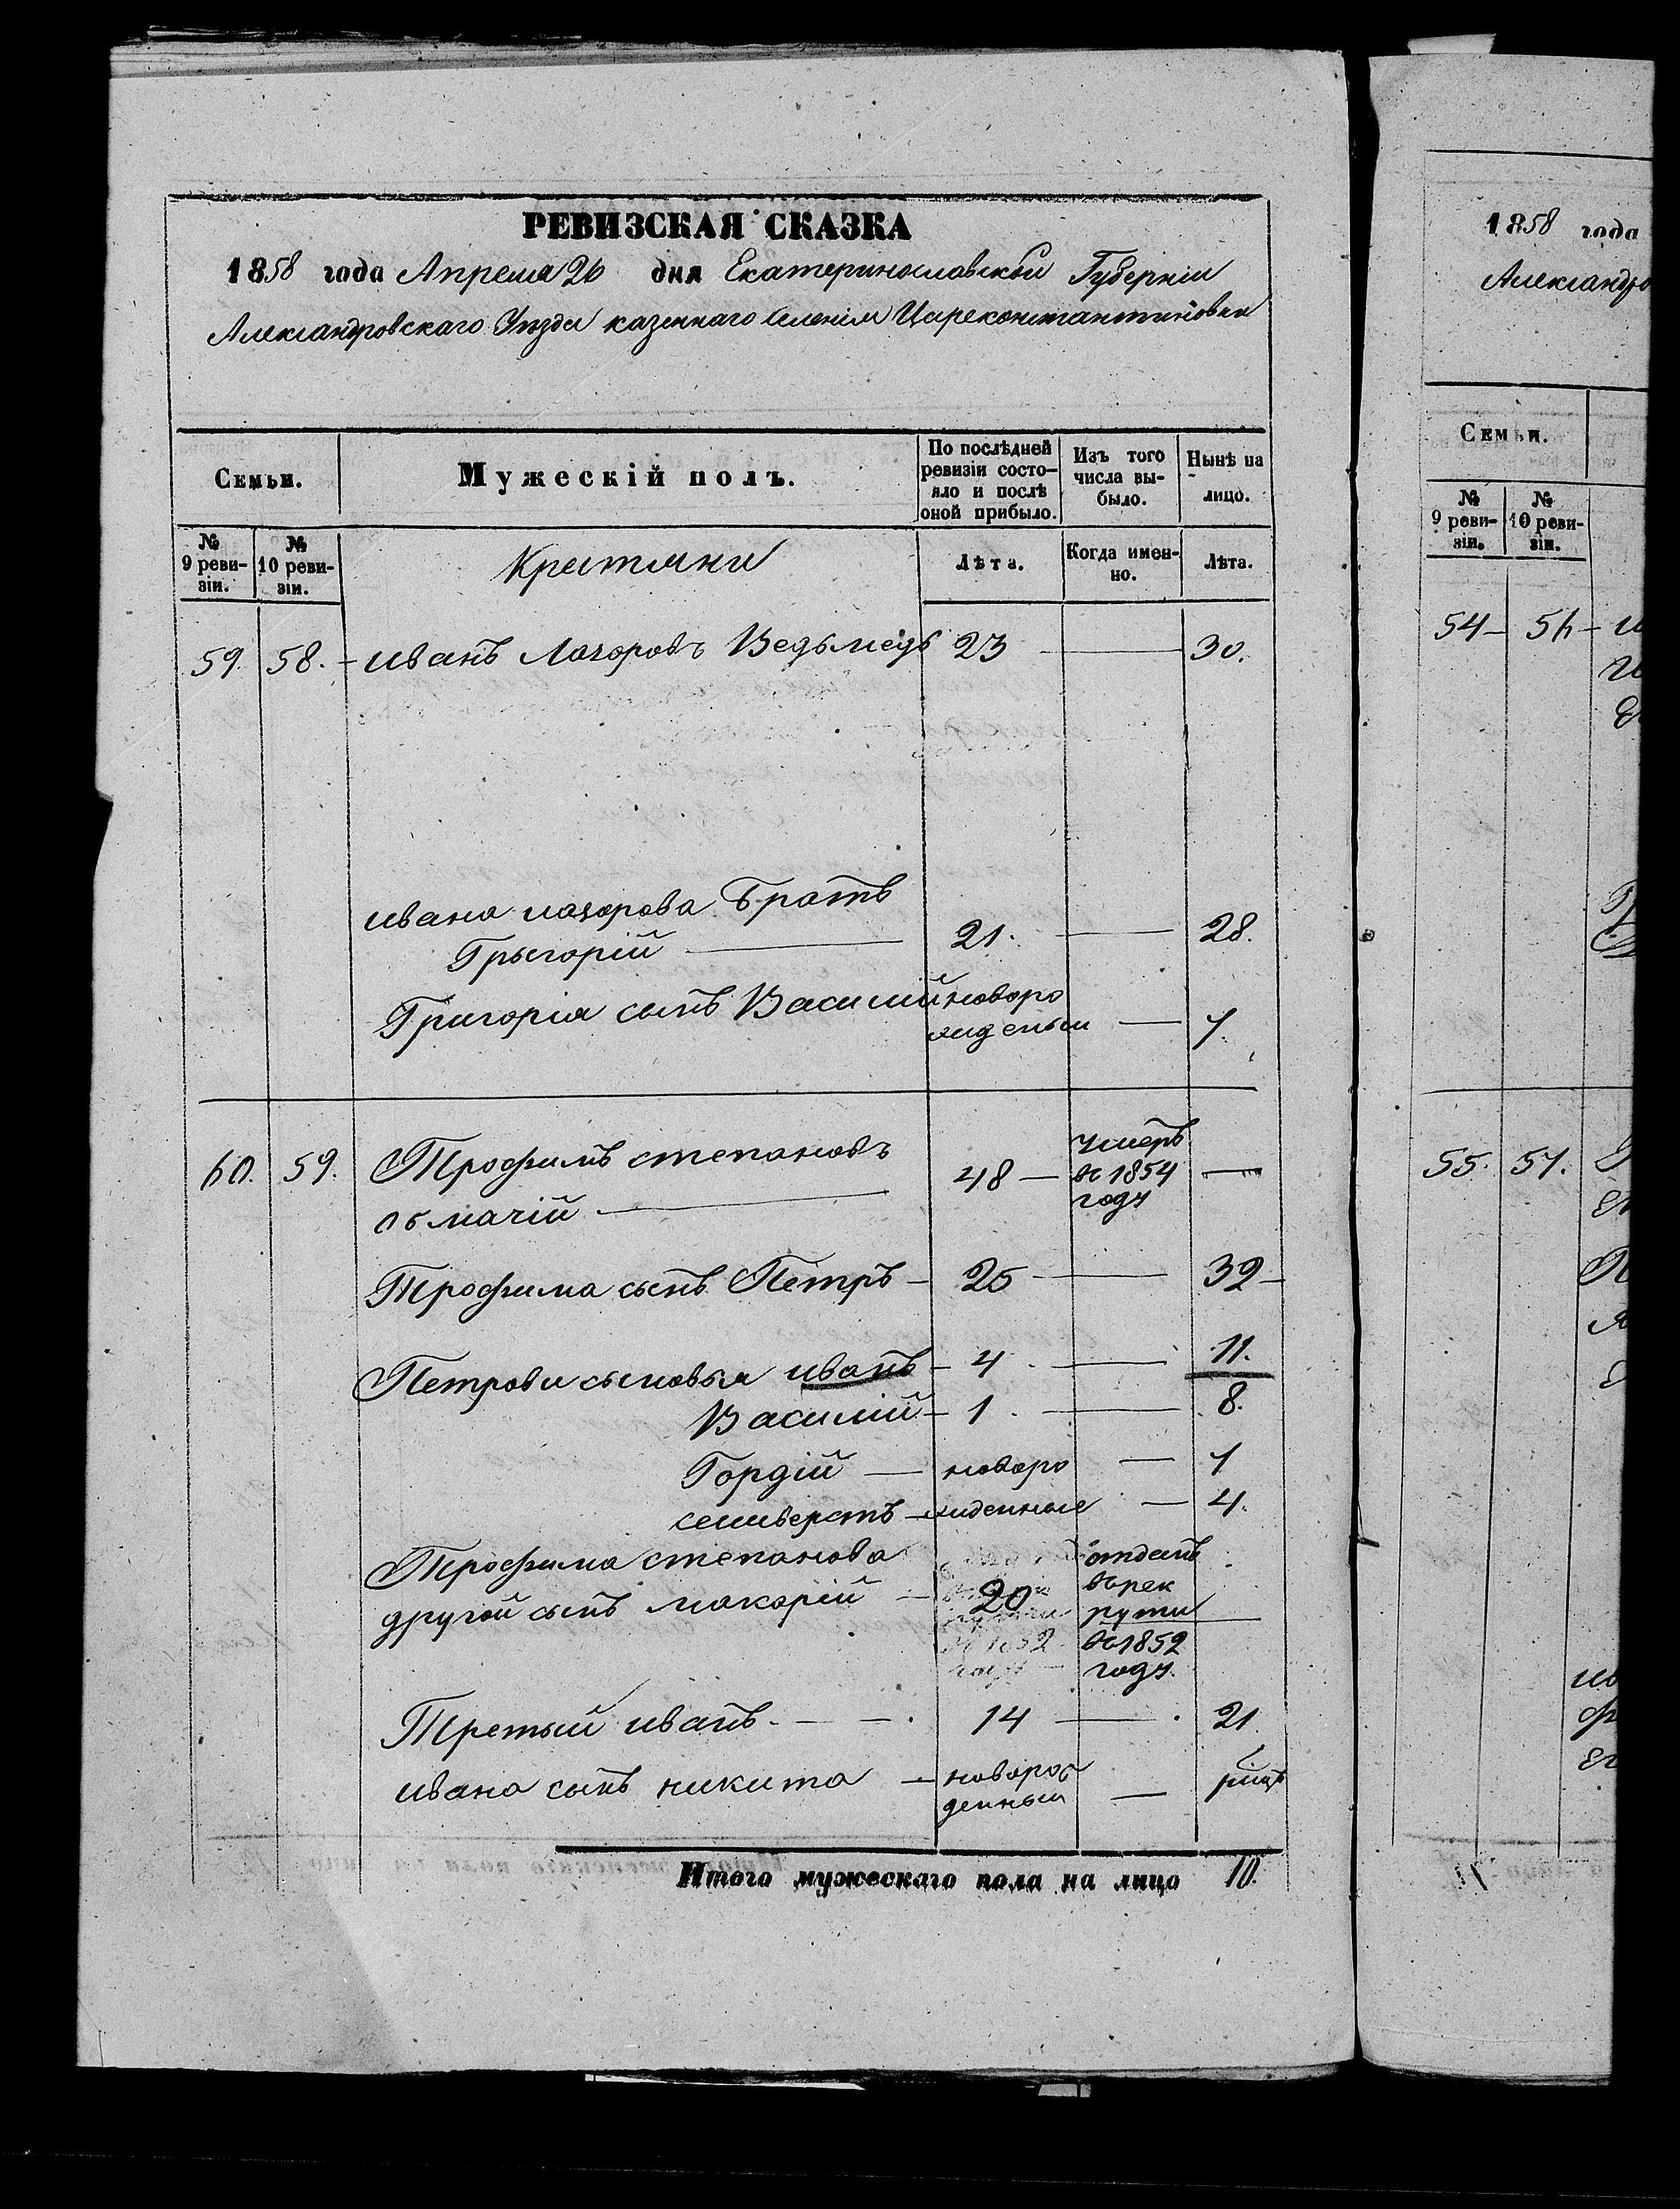 РЕВИЗСКАЯ СКАЗКА
1858 года Апреля 26 дня Екатеринославской Губерніи
Александровскаго Уѣзда казеннаго селенія Цареконстантиновки
Семьи.
Мужескій полъ.
По послѣдней ревизіи состо-
яло и послѣ оной прибыло.
Изъ того числа вы-
было.
Нынѣ на лицо.
№ 9 реви-
зіи.
№ 10 реви-
зіи.
Лѣта.
Когда имен-
но.
Лѣта.
59. 58. - иванъ Лазоровъ Ведьмедь 23 — 30.
ивана лазорова Братъ
Грыгорій — 21. — 28.
Григорія сынъ Василий новоро
жденый — 7.
60. 59. Трофимъ степановъ 48 — умеръ
въ 1854
году —
Трофима сынъ Петръ — 25 — 32 —
Петрови сыновья иванъ — 4. — 11.
Василій — 1. — 8.
Гордій — новоро — 7
селиверстъ — жденные — 4.
Трофима степанова
другой сынъ макорій — 20 отданъ
въ рек
руты
въ 1852
году.
Третый иванъ. — 14 — 21.
ивана сынъ никита — новорож
денный —
Итого мужескаго пола на лицо 10.
1858 года
Александро
Семьи.
№ 9 реви-
зіи.
№ 10 реви-
зіи.
54 —
55. 57.